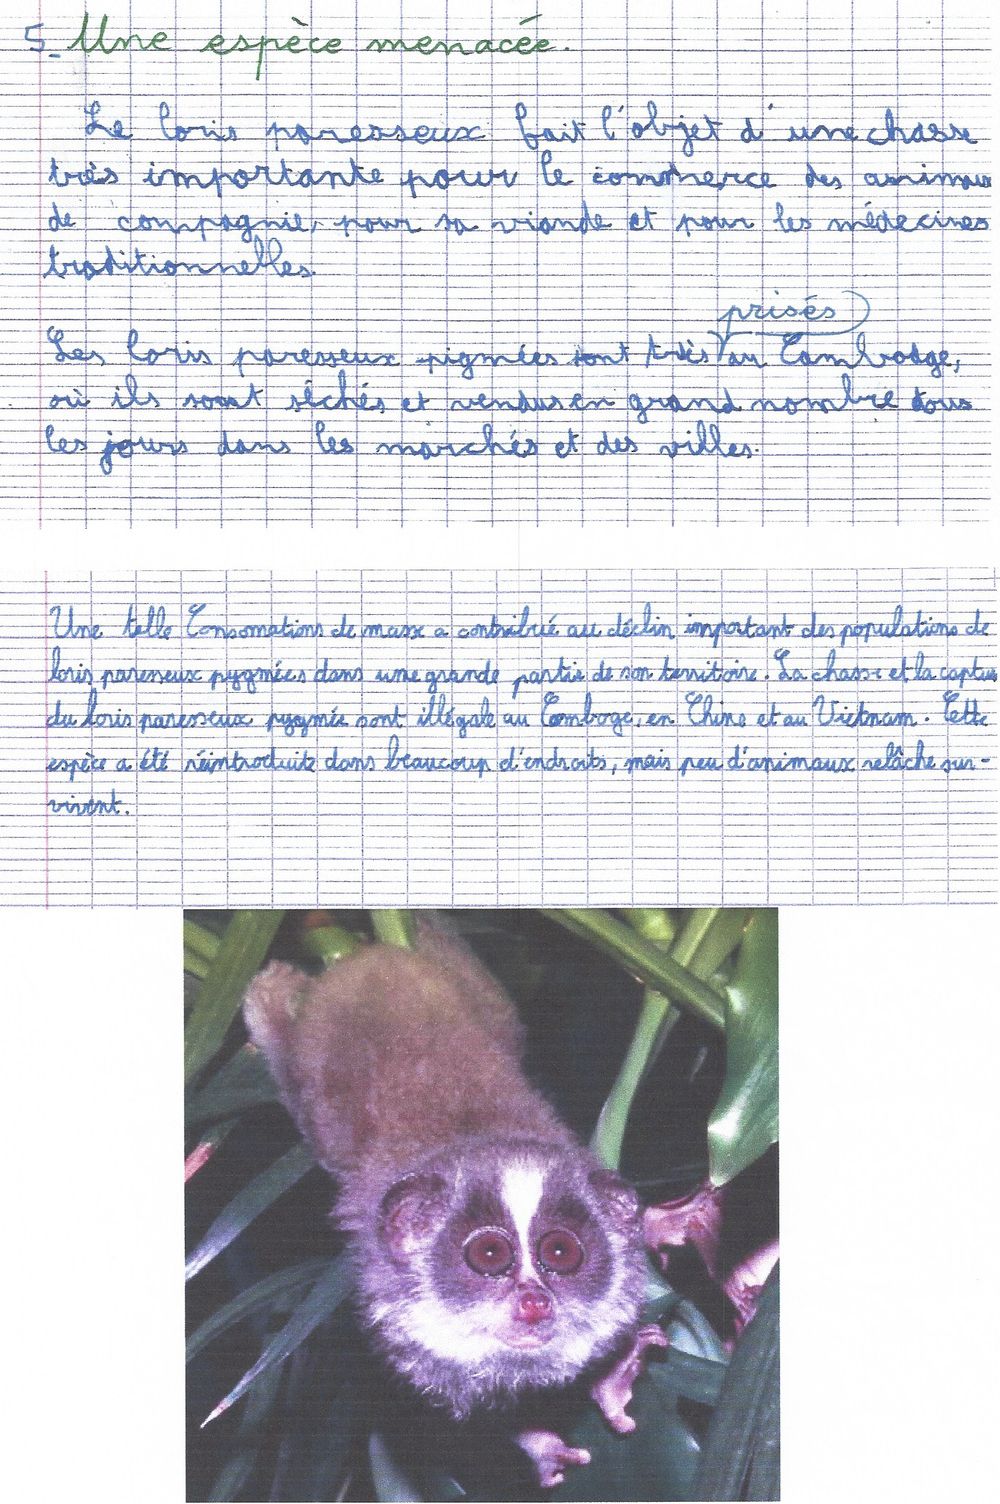 5_ Une espèce menacée.
Le loris paresseux fait l'objet d'une chasse
très importante pour le commerce des animaux
de compagnie, pour sa viande et pour les médecines
traditionnelles.
prisés
Les loris paresseux pigmées sont très au Cambodge,
où ils sont séchés et vendus en grand nombre tous
les jours dans les marchés et des villes.
Une telle Consomations de masse a contribué au déclin important des populations de
loris paresseux pygmées dans une grande partie de son territoire. La chasse et la captur
du loris paresseux pygmée sont illégale au Camboge, en Chine et au Vietnam. Cette
espèce a été réintroduite dans beaucoup d'endroits, mais peu d'animaux relâche sur-
vivent.